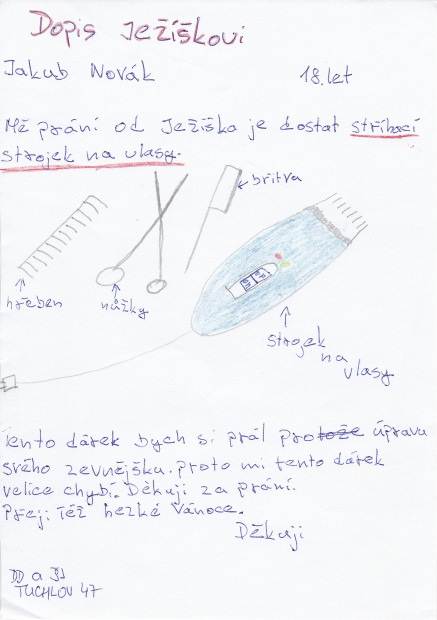 Dopis Ježíškovi
Jakub Novák 18. let
Mé práni od Ježíška je dostat stříhací
strojek na vlasy.
břitva
hřeben
nůžky
strojek
na
vlasy
Tento dárek bych si prál protože úpravu
svého zevnějšku. proto mi tento dárek
velice chybí. Děkuji za práni.
Přeji též hezké Vánoce.
Děkuji
DD a ŠJ
TUCHLOV 47